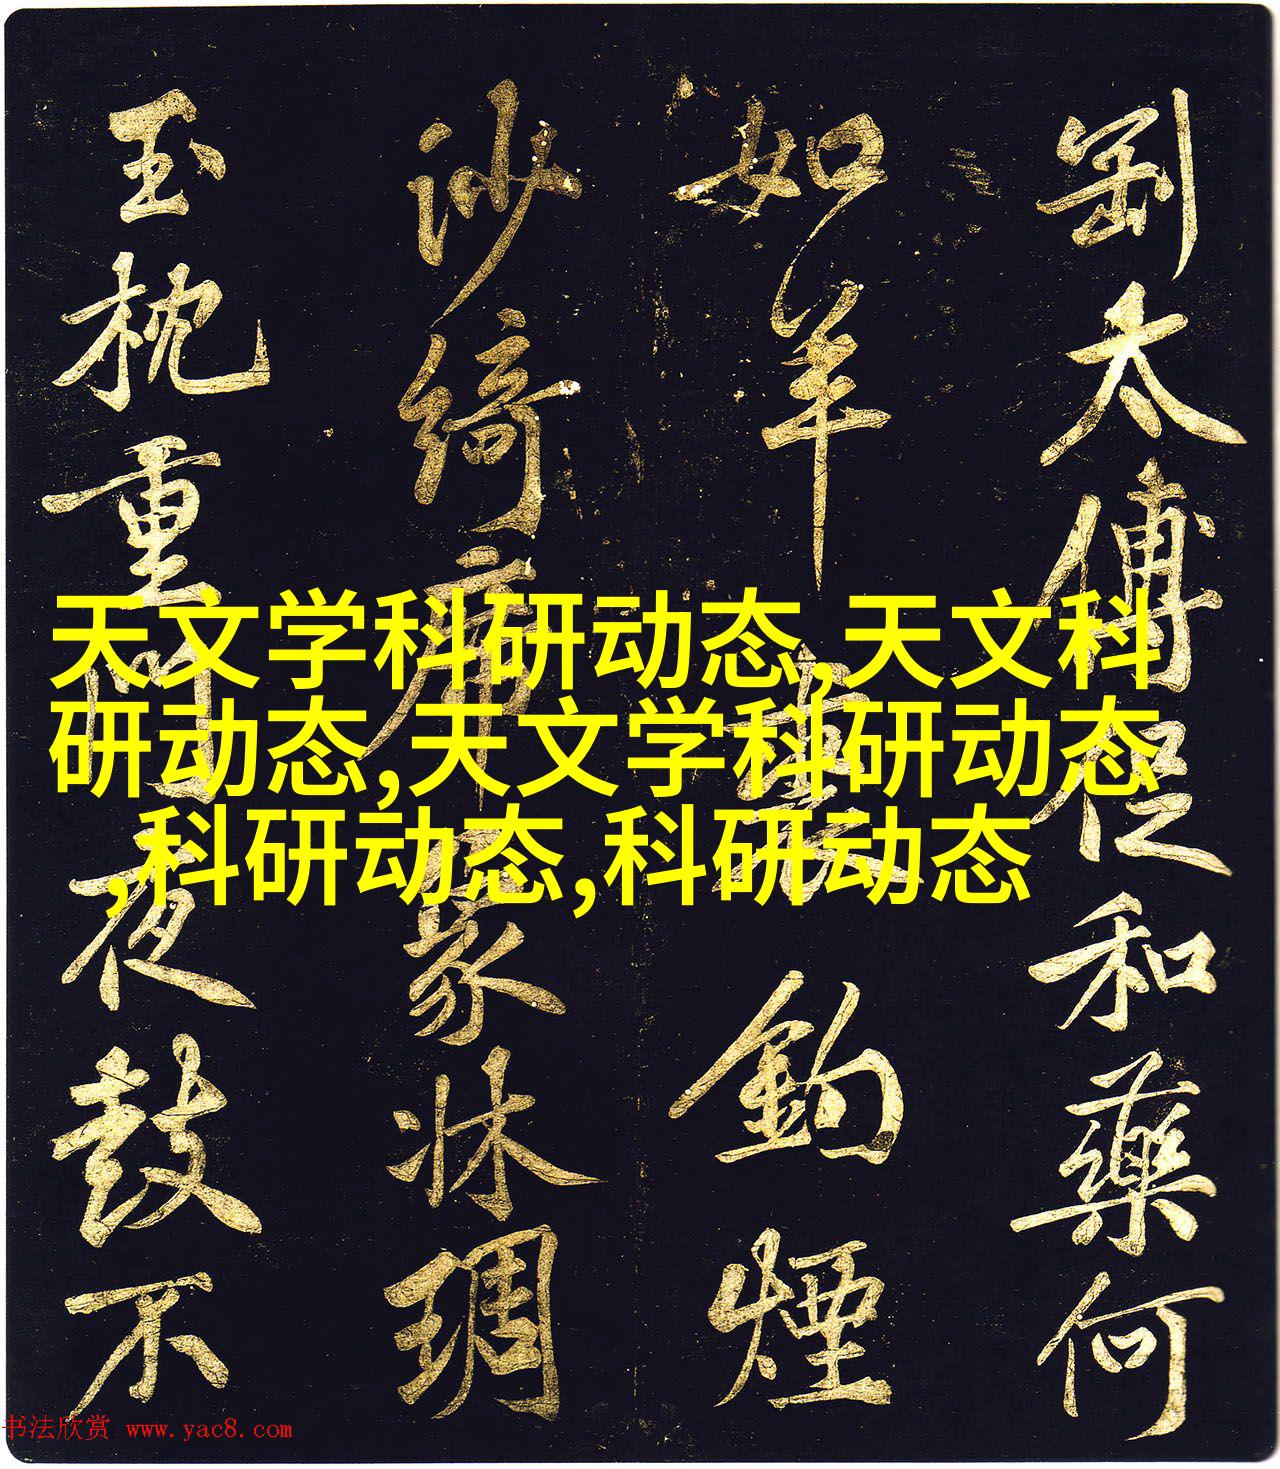 天文学科研动态,天文科
研动态,天文学科研动态
,科研动态,科研动态
太傅
和藥何
如羊
鈎煙
沙綺席
琱
玉枕重
夜鼓不
书法欣赏 www.yac8.com